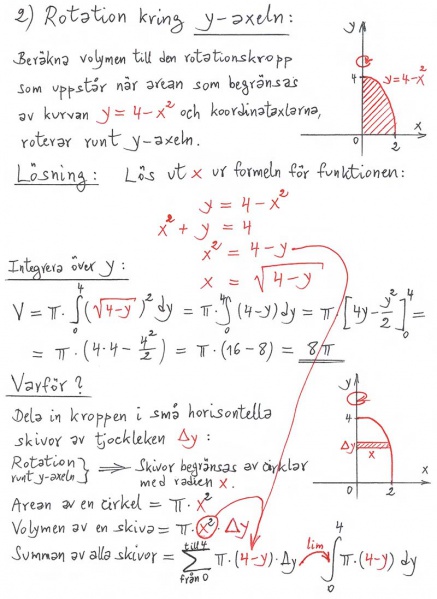 2) Rotation kring y-axeln:
Beräkna volymen till den rotationskropp
som uppstår när arean som begränsas
av kurvan y = 4 - x² och koordinataxlarna,
roterar runt y-axeln.
y
4
y = 4 - x²
0
2
x
Lösning: Lös ut x ur formeln för funktionen:
y = 4 - x²
x² + y = 4
x² = 4 - y
x = √(4 - y)
Integrera över y:
V = π · ∫₀⁴ (√(4-y))² dy = π · ∫₀⁴ (4-y) dy = π · [4y - y²/2]₀⁴ =
= π · (4·4 - 4²/2) = π · (16 - 8) = 8π
Varför?
Dela in kroppen i små horisontella
skivor av tjockleken Δy:
Rotation runt y-axeln } ⟹ Skivor begränsas av cirklar
med radien x.
y
4
Δy
x
0
2
x
Arean av en cirkel = π · x²
Volymen av en skiva = π · x² · Δy
Summan av alla skivor = till 4 ∑ från 0 π · (4-y) · Δy lim ∫₀⁴ π · (4-y) dy